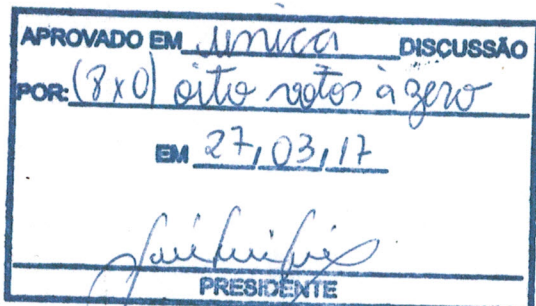 APROVADO EM única DISCUSSÃO
POR: (8x0) oito votos à zero
EM 27/03/17
PRESIDENTE